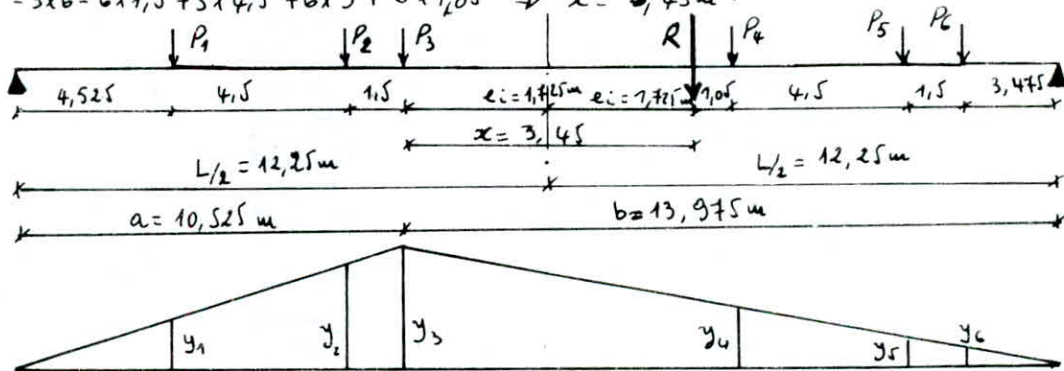 P₁ P₂ P₃ R P₄ P₅ P₆
4,525 4,5 1,5 ei=1,725m ei=1,725m 1,05 4,5 1,5 3,475
x = 3,45
L/2 = 12,25m L/2 = 12,25m
a = 10,525 m b = 13,975 m
y₁ y₂ y₃ y₄ y₅ y₆